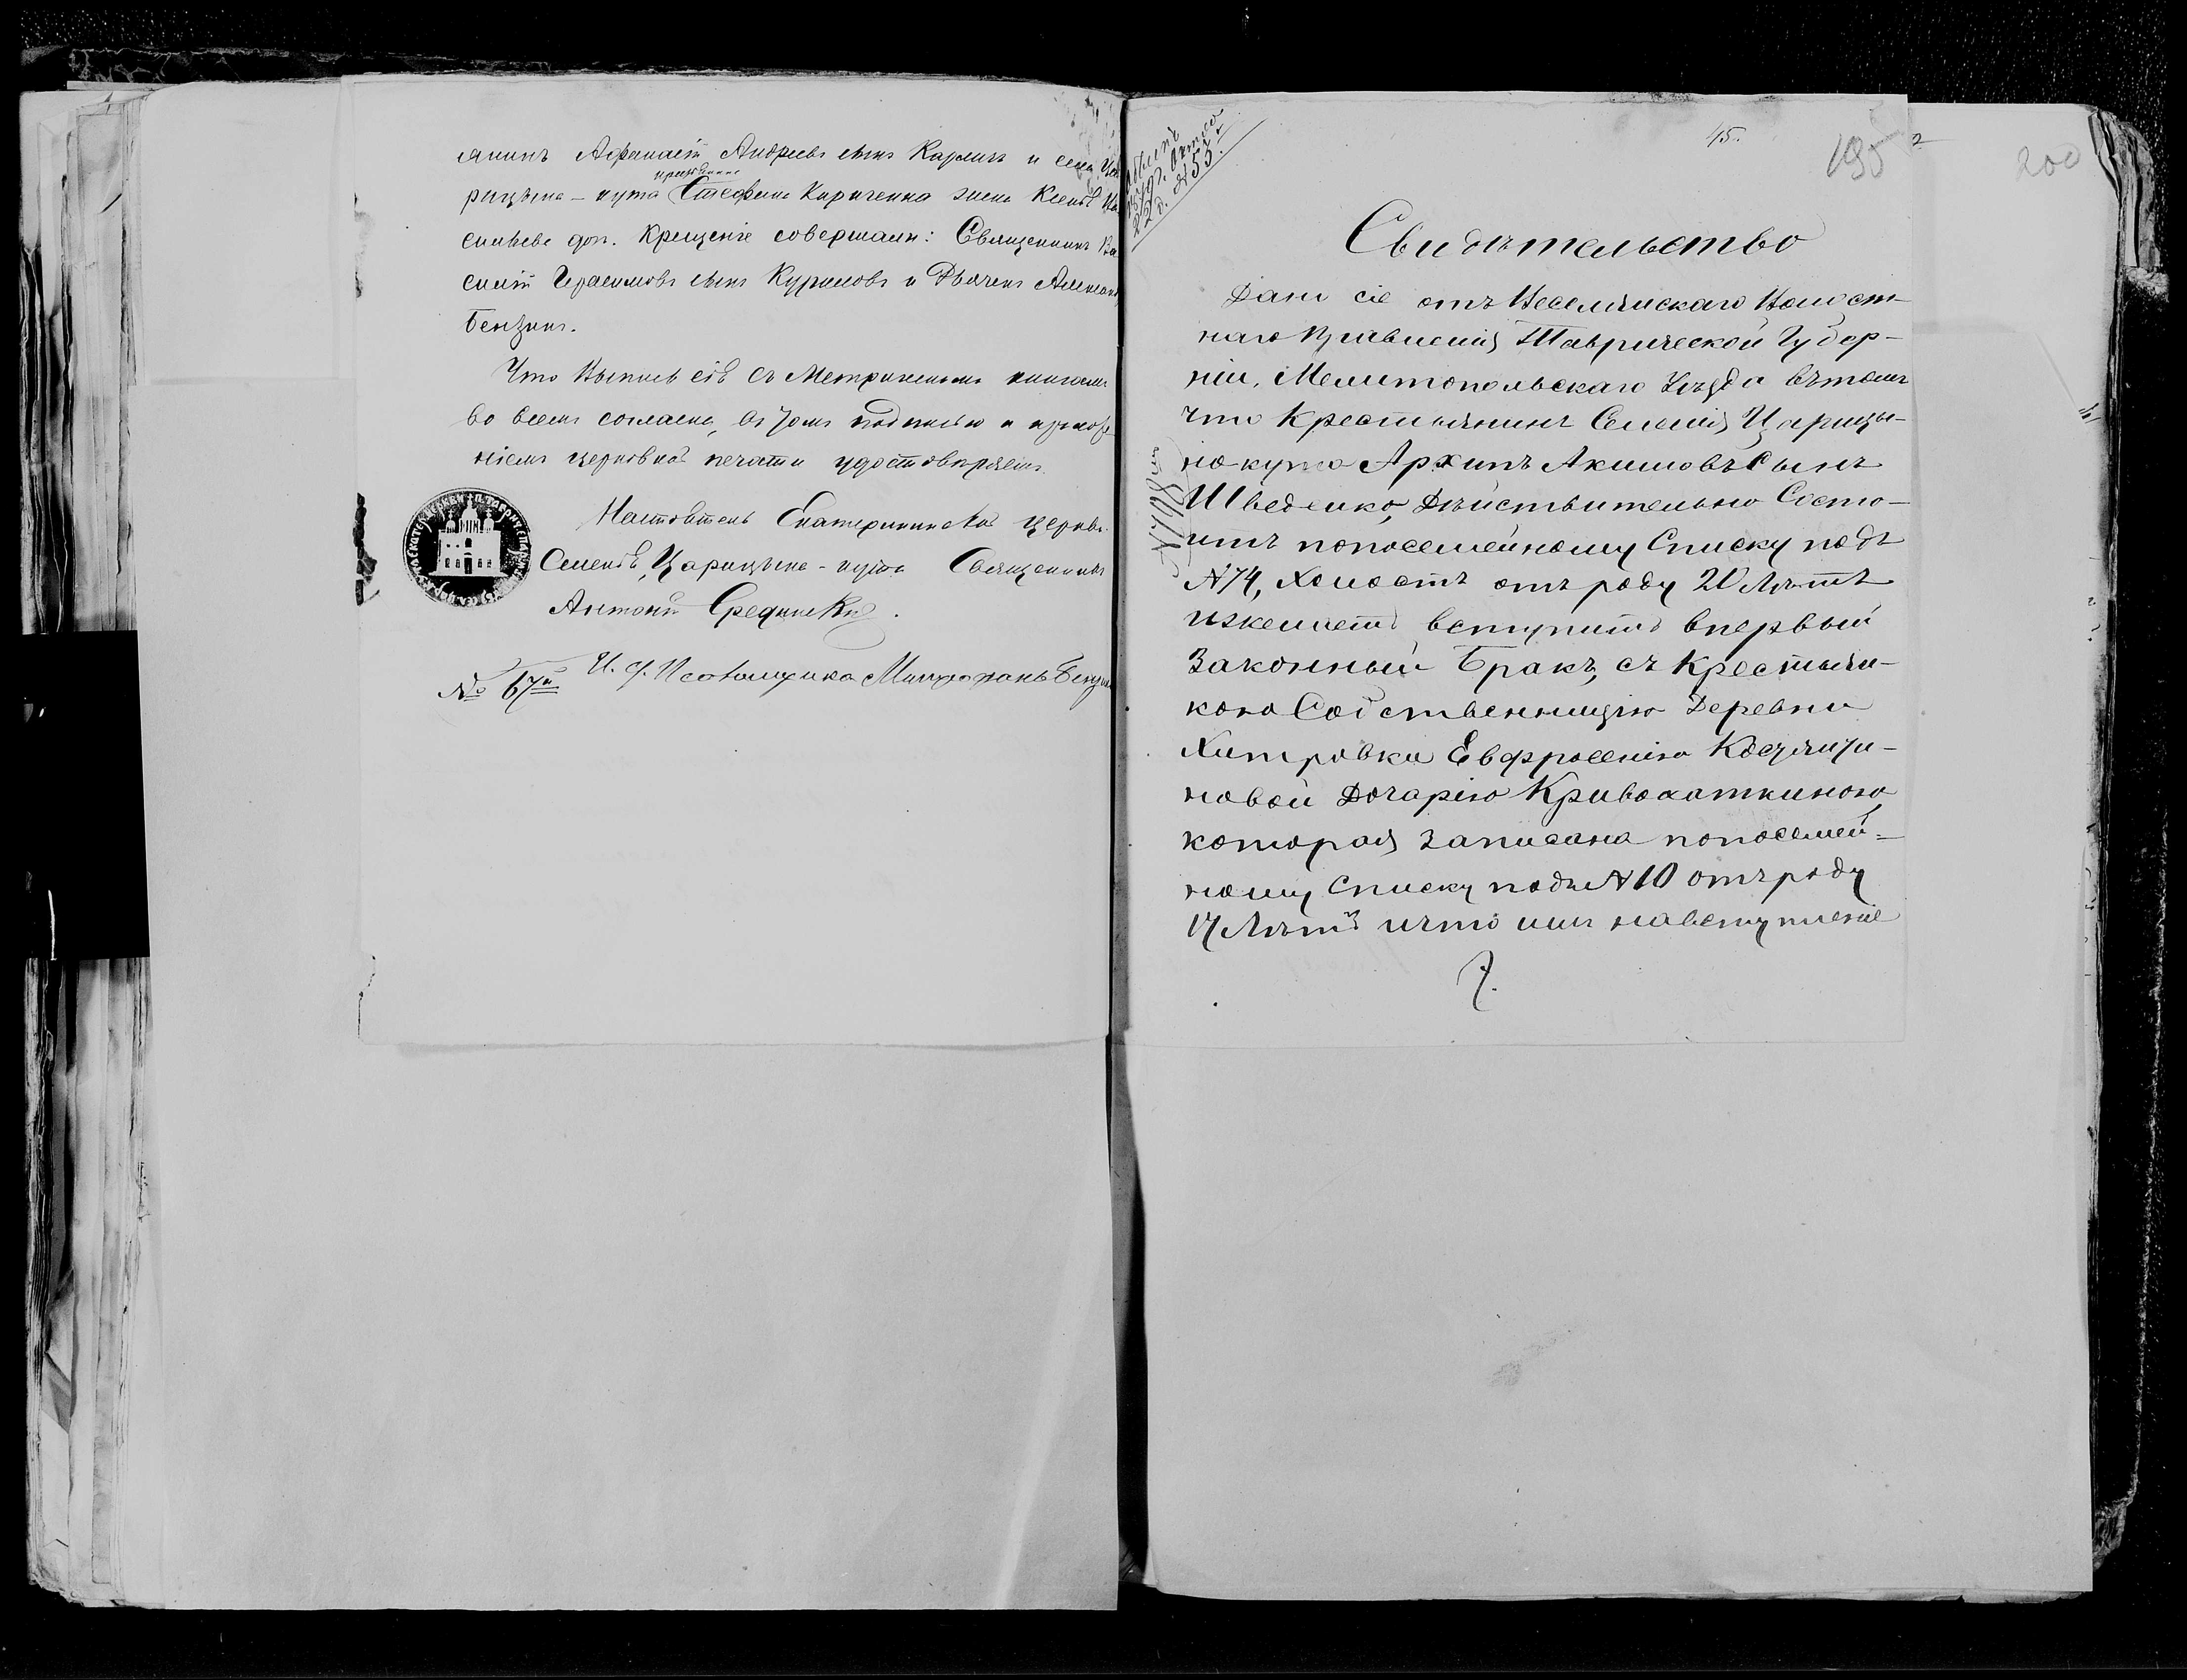 лянинъ Афанасій Андреевъ сынъ Карлинъ и села Ца
рицына-кута крестьянина Стефана Кириченка жена Ксенія Ва
сильева доч. Крещеніе совершали: Священникъ Ва
силій Герасимовъ сынъ Куриловъ и Дьячекъ Алексан
Бензинъ.
Что Выпись сія съ Метрическими книгами
во всемъ согласна, въ томъ подписью и приложе-
ніемъ церковной печати удостовѣряемъ.
Настоятель Екатерининской церкви
Селенія, Царицына-кута Священникъ
Антоній Срединскій.
№ 67й И. д. Псаломщика Митрофанъ Бензин
45.
195
200
№ 55.
Свидѣтельство
Дано сіе отъ Веселянскаго Волост-
наго Правленія Таврической Губер-
ніи, Мелитопольскаго Уѣзда вътомъ
что Крестьянинъ Селенія Царицы-
нокута Архипъ Акимовъ Сынъ
Шведенко, Дѣйствительно Состо-
итъ попосемейному Списку подъ
№74, Холостъ отъ роду 20 Лѣтъ
ижелаетъ вступить впервый
Законный Бракъ, съ Крестьян-
кою Собственницію Деревни
Хитровки Евфросенію Косьми-
новой Дочерію Кривохаткиною,
которая записана попосемей-
ному Списку подъ №10 отъроду
17 Лѣтъ ичто имъ навступленіе